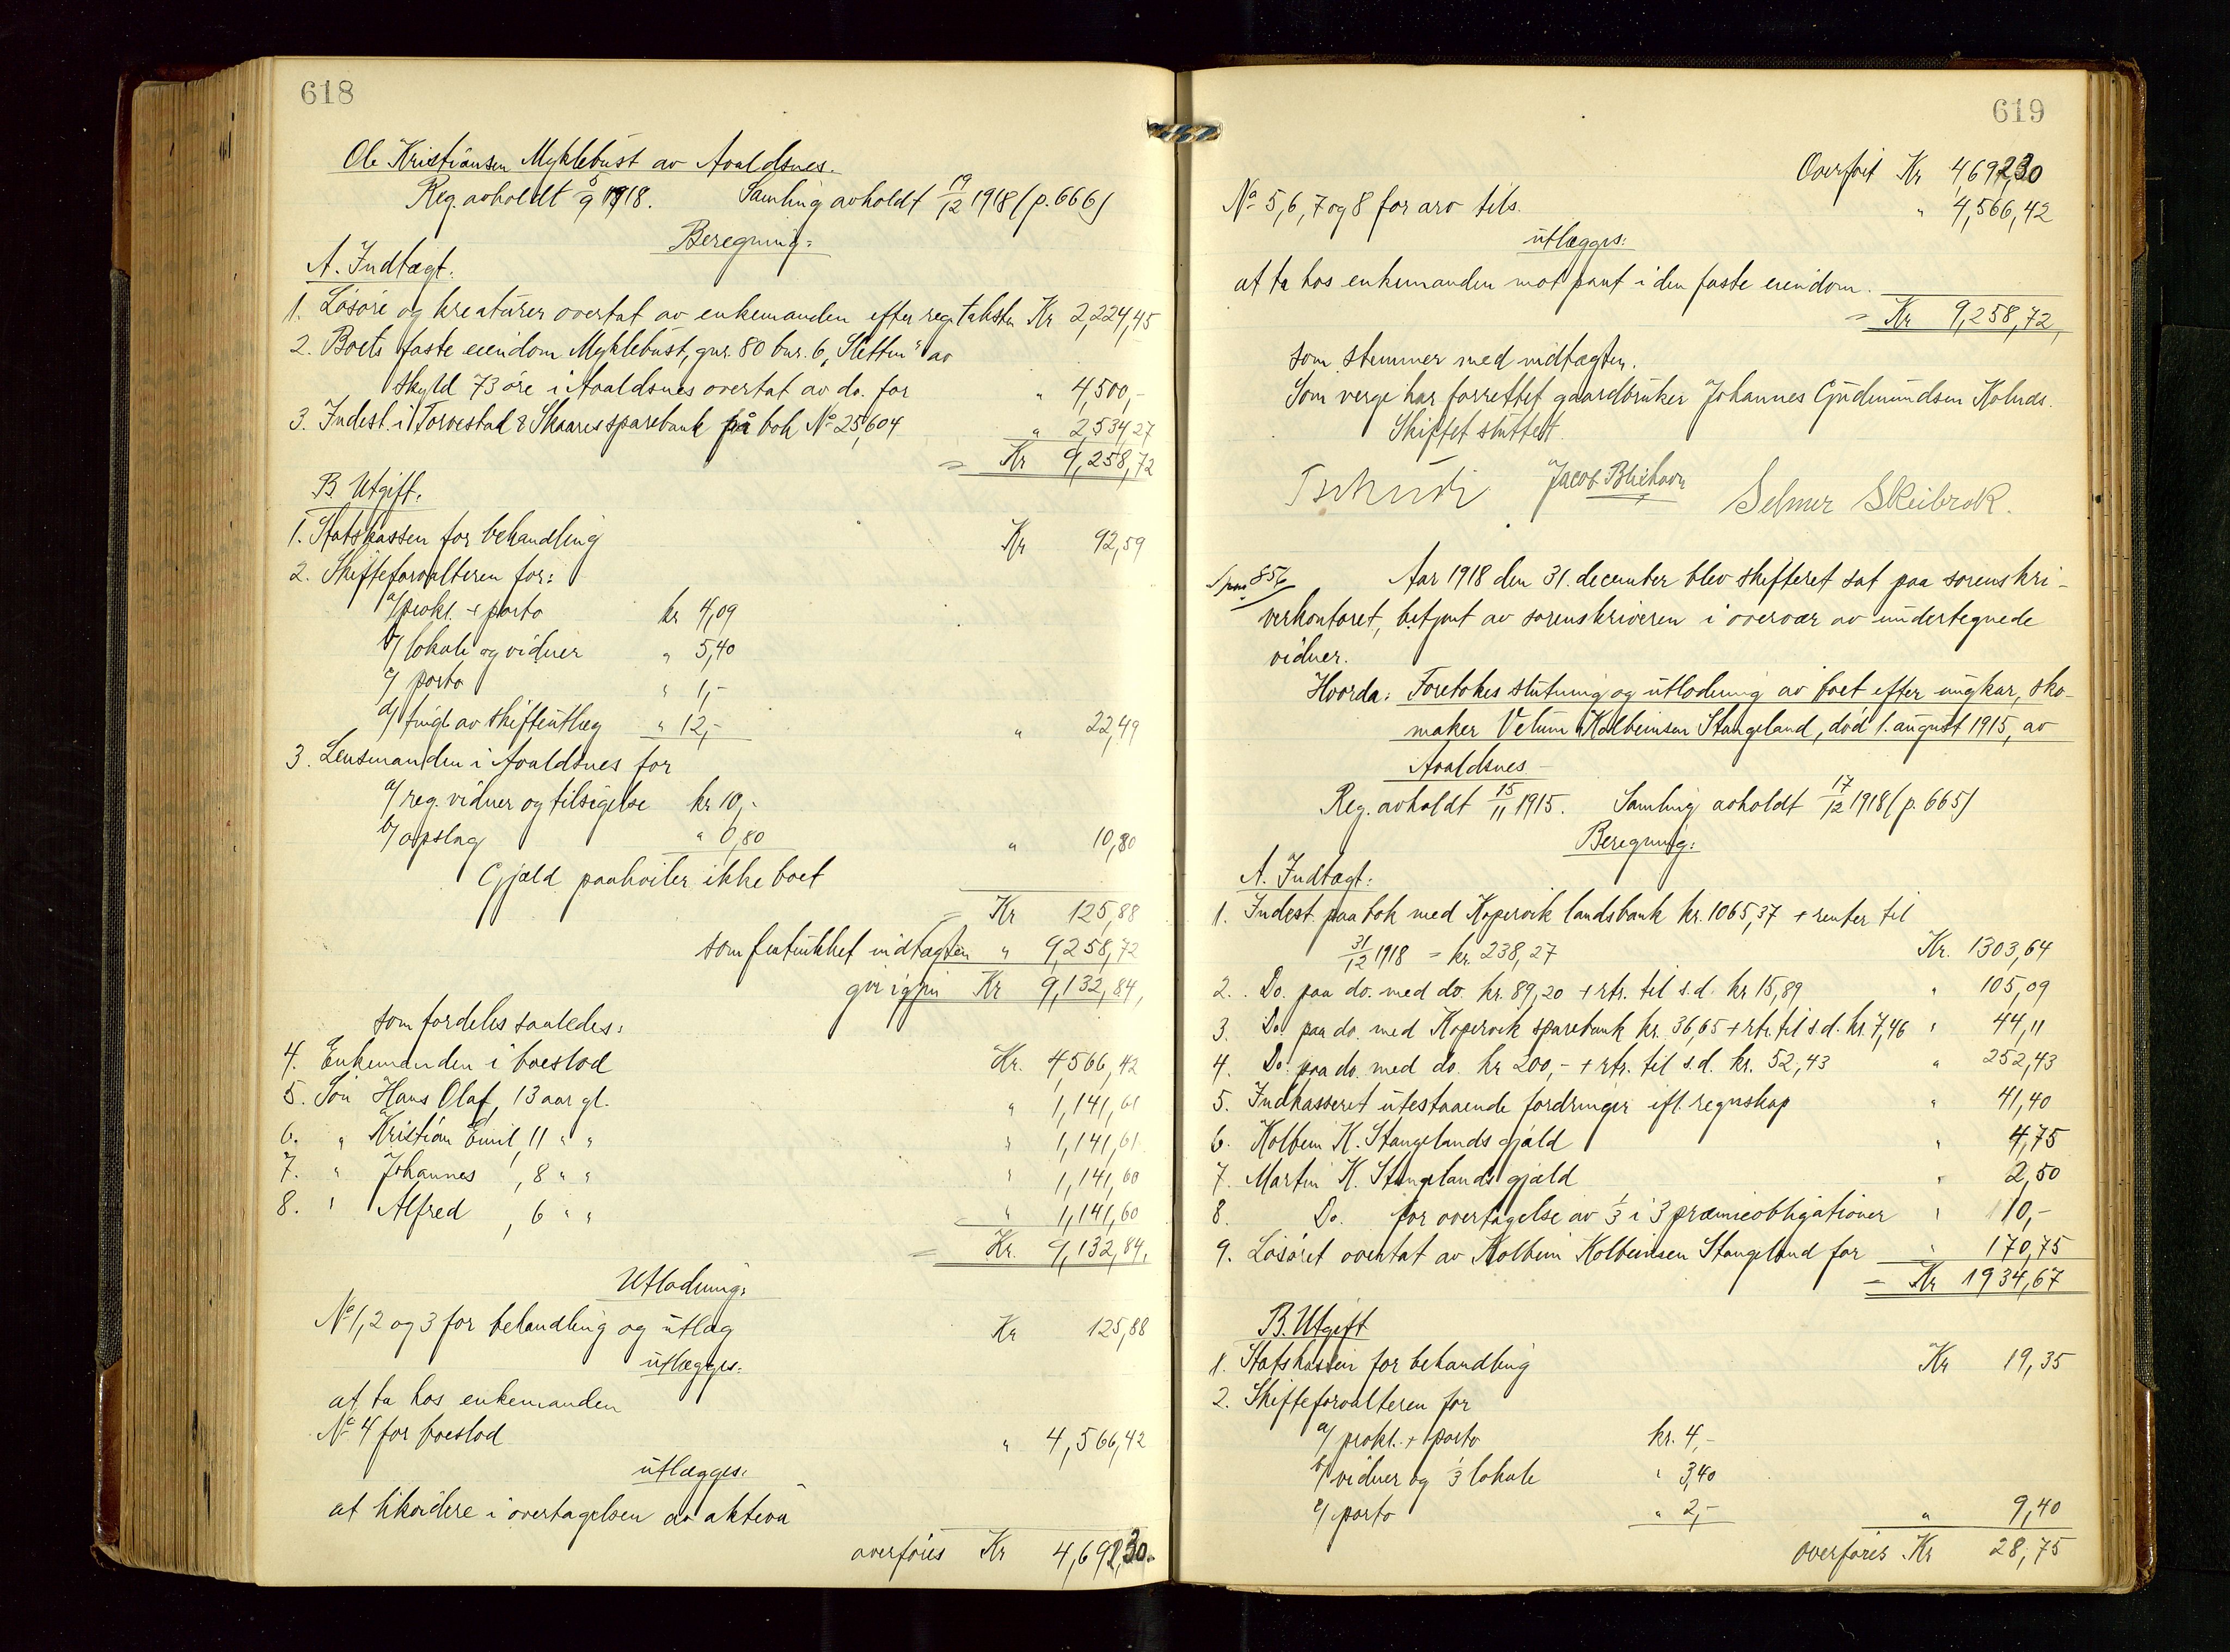 618
Ole Kristiansen Myklebust av Avaldsnes.
Reg. avholdt 5/9 1918. Samling avholdt 19/12 1918 (p. 666)
Beregning:
A. Indtægt:
1. Løsøre og kreaturer overtat av enkemanden efter reg. taksten Kr 2,224,45
2. Boets faste eiendom Myklebust, gnr. 80 bnr. 6, "Sletten" av
skyld 73 øre i Avaldsnes overtat av do. for " 4,500,-
3. Indest. i Torvestad & Skaares sparebank på bok No 25,604 " 2,534,27
= Kr 9,258,72
B. Utgift.
1. Statskassen for behandling Kr 92,59
2. Skifteforvalteren for:
a/ prokl. + porto kr 4,09
b/ lokale og vidner " 5,40
c/ porto " 1,-
d/ tingl. av skifteutlæg " 12,- " 22,49
3. Lensmanden i Avaldsnes for
a/ reg. vidner og tilsigelse kr 10,-
b/ opslag " 0,80 " 10,80
Gjæld paahviler ikke boet
= Kr 125,88
som fratrukket indtægten " 9,258,72
gir igjen Kr 9,132,84,
som fordeles saaledes:
4. Enkemanden i boeslod Kr. 4566,42
5. Søn Hans Olaf, 13 aar gl. " 1,141,61
6. " Kristian Emil, 11 " " " 1,141,61
7. " Johannes, 8 " " " 1,141,60
8. " Alfred, 6 " " " 1,141,60
= Kr. 9,132,84,
Utlodning:
No 1, 2 og 3 for behandling og utlæg Kr 125,88
utlægges:
at ta hos enkemanden
No 4 for boeslod " 4,566,42
utlægges:
at likvidere i overtagelsen av aktiva
overføres Kr 4,692,30.
619
Overført Kr 4,692,30
No 5, 6, 7 og 8 for arv tils. " 4,566,42
utlægges:
at ta hos enkemanden mot pant i den faste eiendom.
= Kr 9,258,72,
som stemmer med indtægten.
Som verge har forrettet gaardbruker Johannes Gudmundsen Kolnes.
Skiftet sluttet.
Tschudi Jacob Blikhavn Selmer Skeibrok.
Aar 1918 den 31. december blev skifteret sat paa sorenskri-
verkontoret, betjent av sorenskriveren i overvær av undertegnede
vidner.
Hvorda: Foretokes slutning og utlodning av boet efter ungkar, sko-
maker Velum Kolbeinsen Stangeland, død 1. august 1915, av
Avaldsnes
Reg. avholdt 15/11 1915. Samling avholdt 17/12 1918 (p. 665)
Beregning:
A. Indtægt:
1. Indest. paa bok med Kopervik landsbank kr. 1065,37 + renter til
31/12 1918 = kr. 238,27 Kr. 1303,64
2. Do. paa do. med do. kr. 89,20 + rtr. til s.d. kr 15,89 " 105,09
3. Do. paa do. med Kopervik sparebank kr. 36,65 + rtr. til s.d. kr. 7,46 " 44,11
4. Do. paa do. med do. kr 200,- + rtr. til s.d. kr. 52,43 " 252,43
5. Indkasseret utestaaende fordringer ifl. regnskap " 41,40
6. Kolbein K. Stangelands gjæld " 4,75
7. Martin K. Stangelands gjæld " 2,50
8. Do. for overtagelse av 1/3 i 3 præmieobligationer " 10,-
9. Løsøret overtat av Kolbein Kolbeinsen Stangeland for " 170,75
= Kr 1934,67
B. Utgift
1. Statskassen for behandling Kr 19,35
2. Skifteforvalteren for
a/ prokl. + porto kr. 4,-
b/ vidner og 1/3 lokale " 3,40
c/ porto " 2,- " 9,40
overføres Kr 28,75